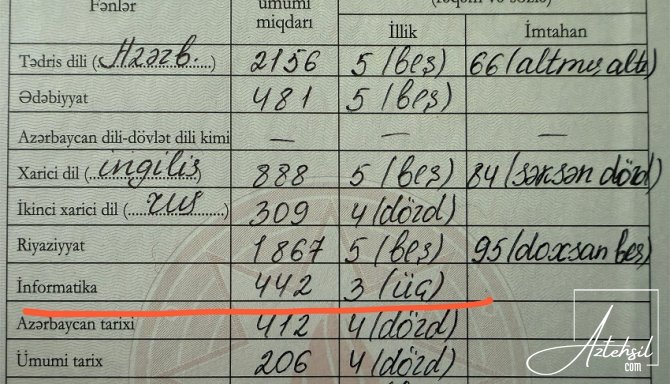 Fənlər ümumi miqdarı (rəqəm və sözlə)
İllik İmtahan
Tədris dili (Azərb.) 2156 5 (beş) 66 (altmış altı)
Ədəbiyyat 481 5 (beş)
Azərbaycan dili-dövlət dili kimi — — —
Xarici dil (ingilis) 888 5 (beş) 84 (səksən dörd)
İkinci xarici dil (rus) 309 4 (dörd)
Riyaziyyat 1867 5 (beş) 95 (doxsan beş)
İnformatika 442 3 (üç)
Azərbaycan tarixi 412 4 (dörd)
Ümumi tarix 206 4 (dörd)
Aztehsil
.com